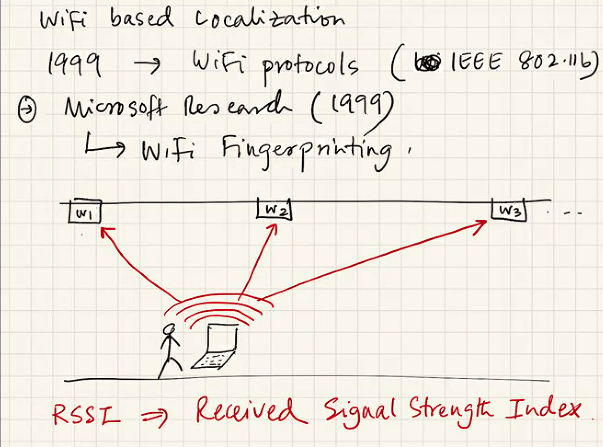 WiFi based Localization
1999 → WiFi protocols ( IEEE 802.11b)
→ Microsoft Research (1999)
↳ WiFi Fingerprinting.
W1 W2 W3 ...
RSSI ⇒ Received Signal Strength Index.